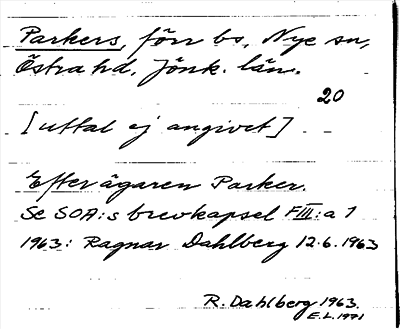 Parkers, förr bs, Nye sn,
Östra hd, Jönk. län.
20
[uttal ej angivet]
Efter ägaren Parker.
Se SOA:s brevkapsel FIII:a 7
1963: Ragnar Dahlberg 12.6.1963
R. Dahlberg 1963.
E.L. 1971